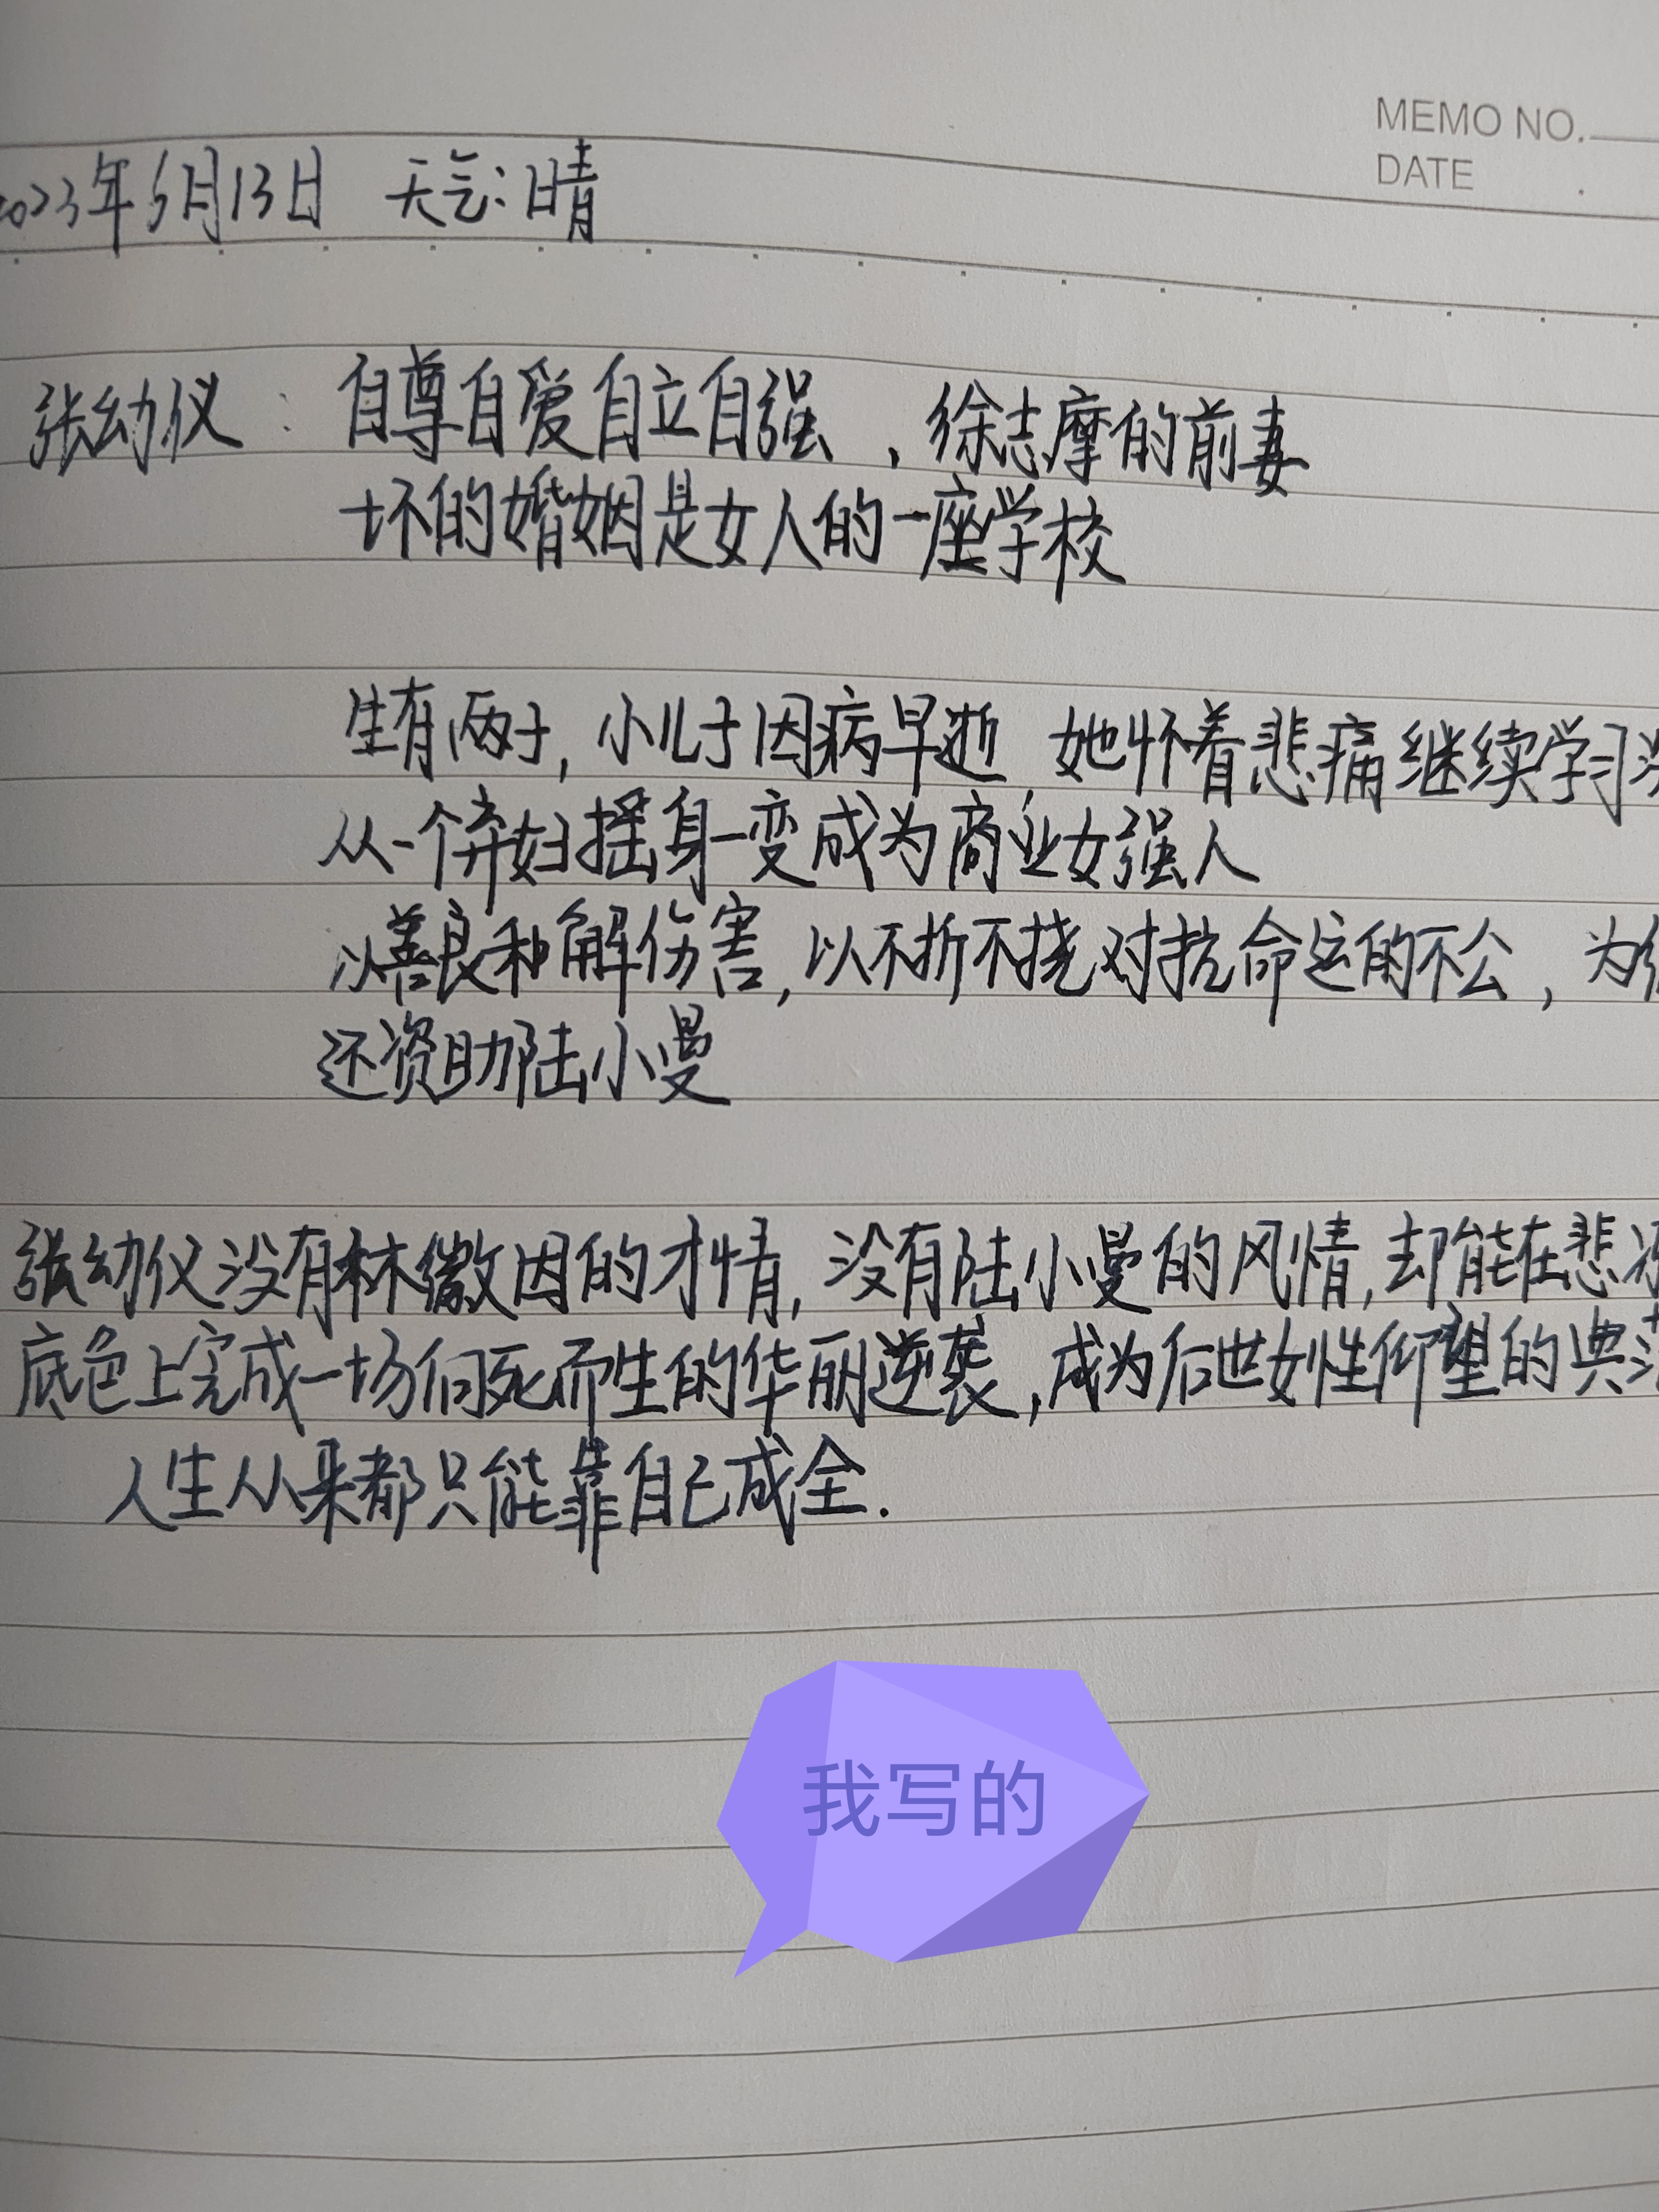 MEMO NO.
DATE
2023年5月13日 天气:晴
张幼仪:自尊自爱自立自强,徐志摩的前妻
坏的婚姻是女人的一座学校
生有两子,小儿子因病早逝 她怀着悲痛继续学习
从一个弃妇摇身一变成为商业女强人
以善良和解伤害,以不折不挠对抗命运的不公,为
还资助陆小曼
张幼仪没有林徽因的才情,没有陆小曼的风情,却能在悲
底色上完成一场向死而生的华丽逆袭,成为后世女性仰望的典
人生从来都只能靠自己成全.
我写的